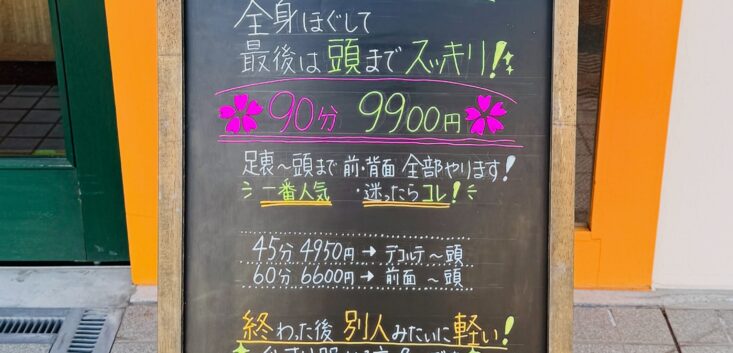 全身ほぐして
最後は頭までスッキリ!
90分 9900円
足裏〜頭まで 前・背面 全部やります!
一番人気 ・迷ったらコレ!
45分 4950円→デコルテ〜頭
60分 6600円→前面〜頭
終わった後 別人みたいに軽い!